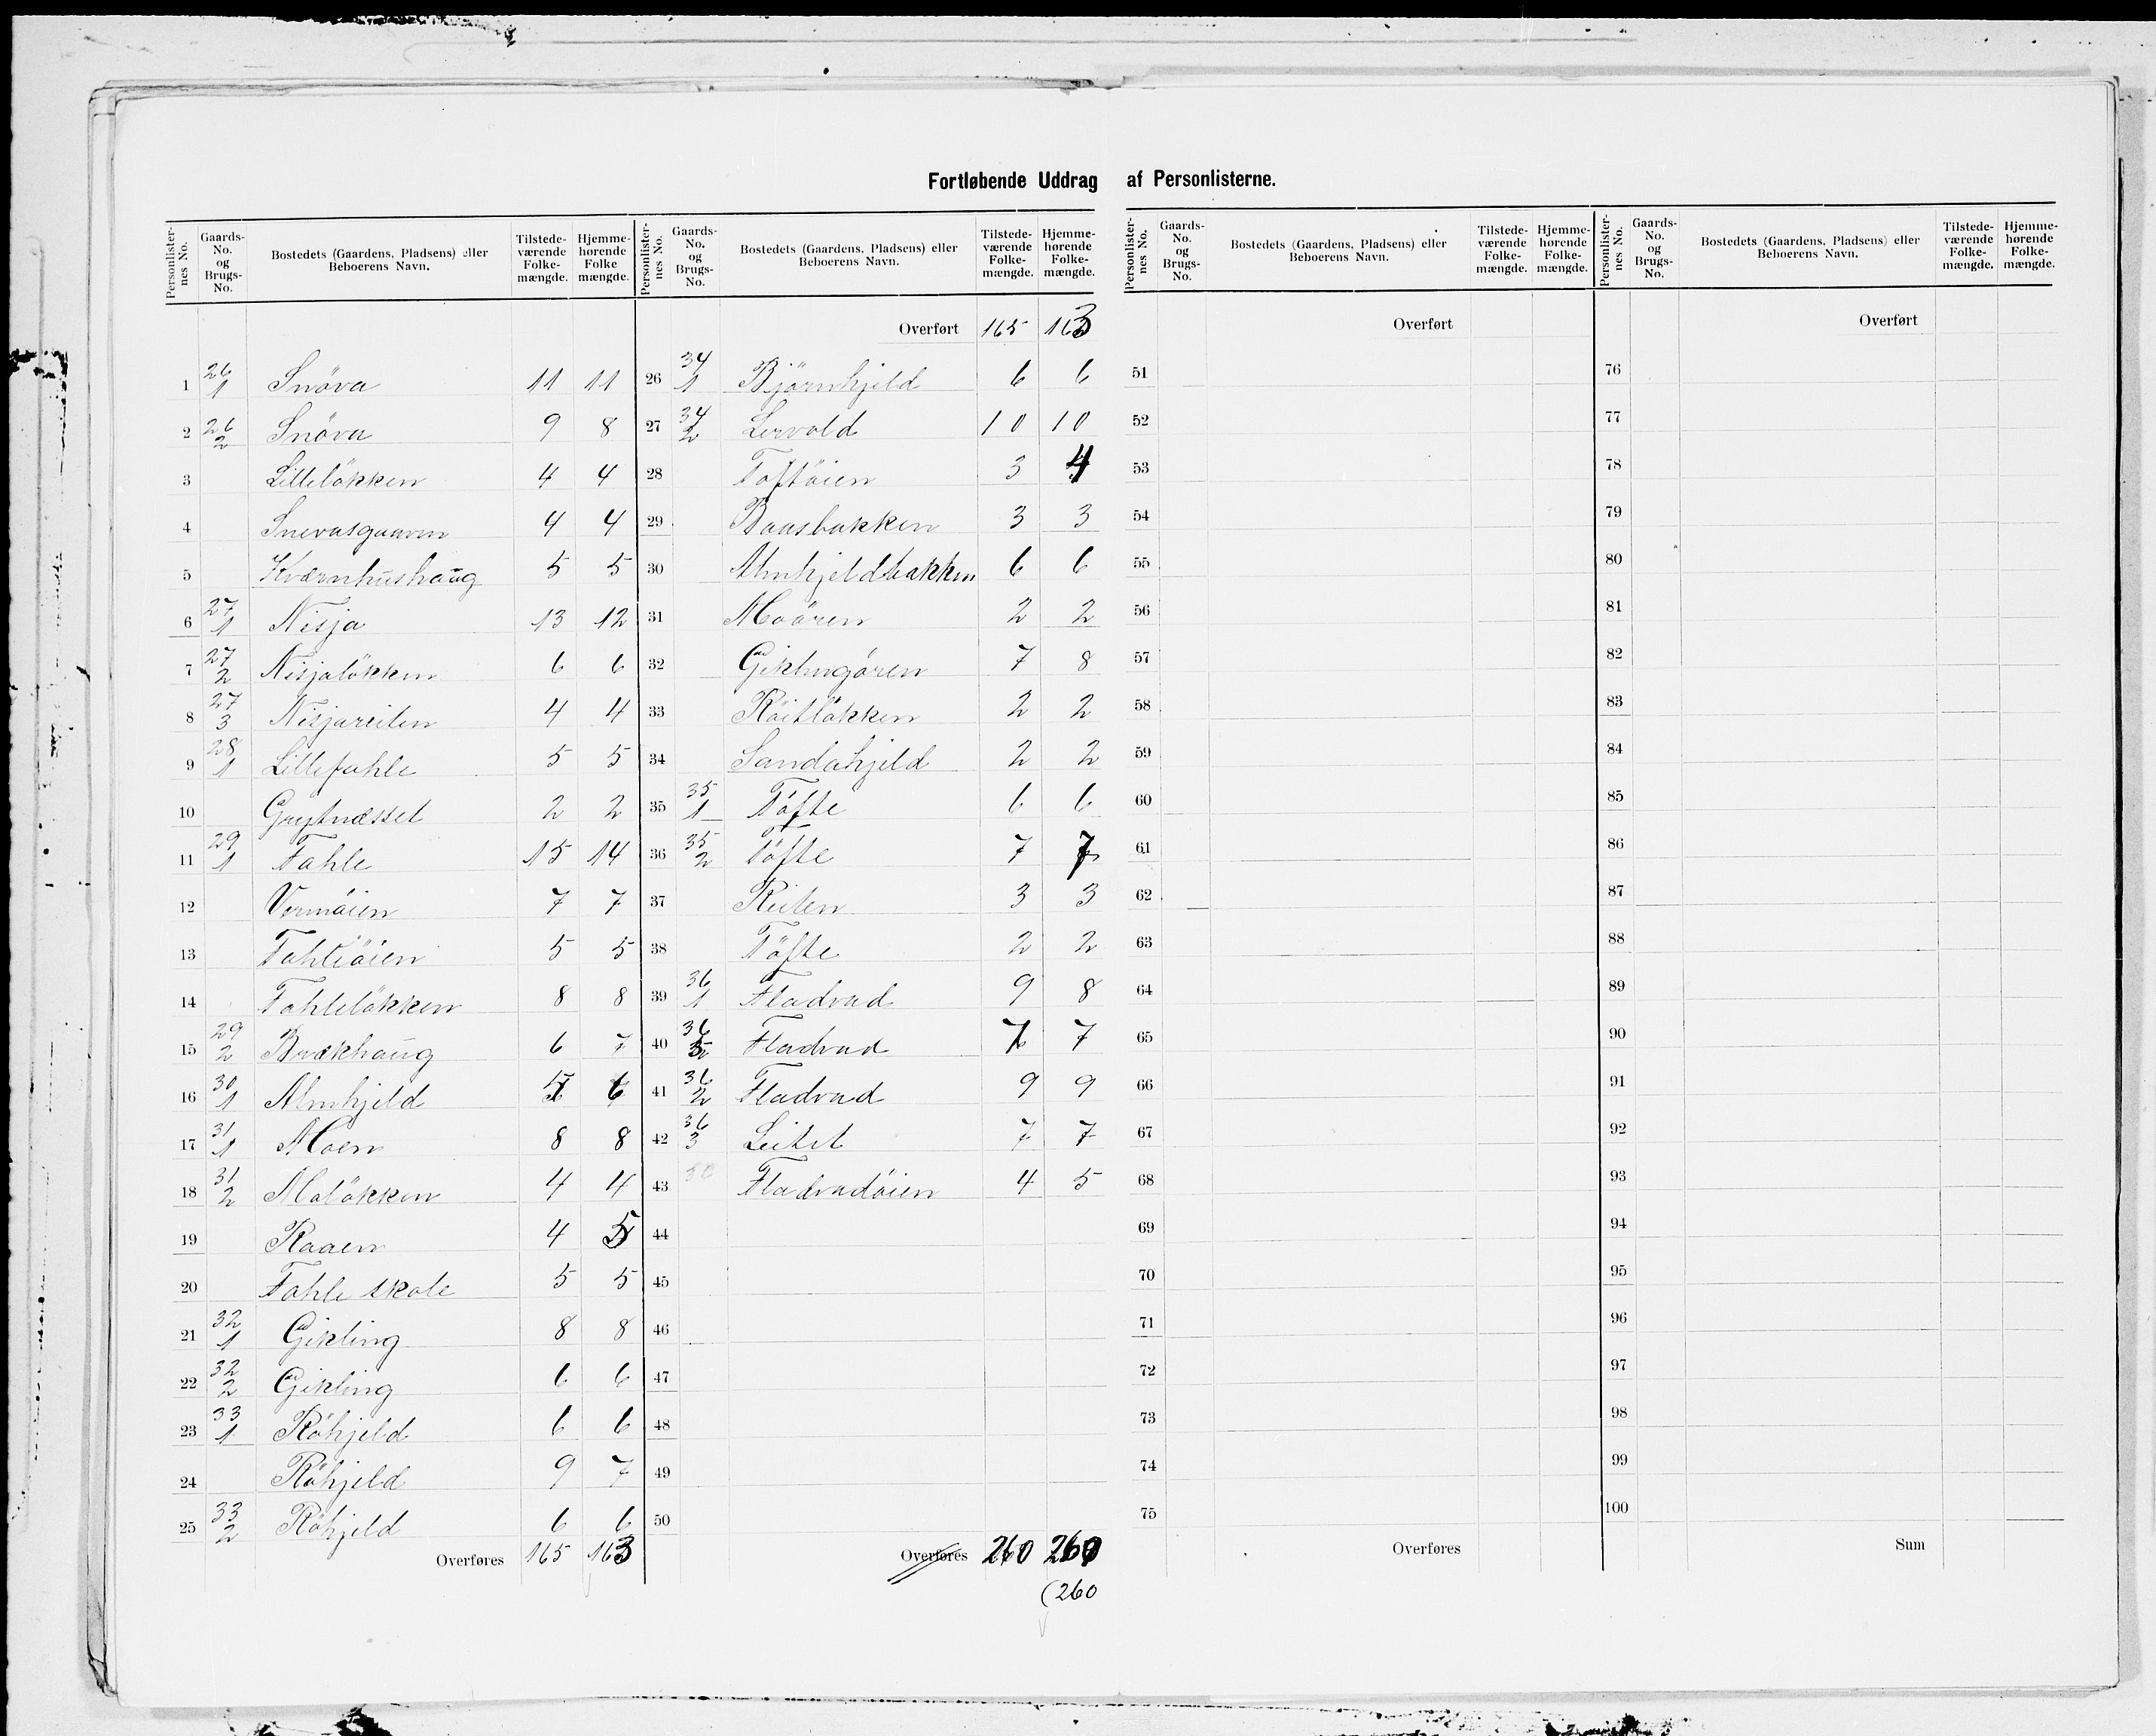 Fortløbende Uddrag af Personlisterne.
Personlister-nes No. | Gaards-No. og Brugs-No. | Bostedets (Gaardens, Pladsens) eller Beboerens Navn. | Tilstede-værende Folke-mængde. | Hjemme-hørende Folke mængde.
1 26/1 Snöva 11 11
2 26/2 Snöva 9 8
3 Lilleløkken 4 4
4 Snevasgaaren 4 4
5 Kværnhushaug 5 5
6 27/1 Nisja 13 12
7 27/2 Nisjaløkken 6 6
8 27/3 Nisjareiten 4 4
9 28/1 Lillefahle 5 5
10 Grytnæsset 2 2
11 29/1 Fahle 15 14
12 Vermöien 7 7
13 Fahleöien 5 5
14 Fahleløkken 8 8
15 29/2 Brækhaug 6 7
16 30/1 Almhjeld 5 6
17 31/1 Moen 8 8
18 31/2 Moløkken 4 4
19 Raaen 4 5
20 Fahle skole 5 5
21 32/1 Gikling 8 8
22 32/2 Gikling 6 6
23 33/1 Röhjeld 6 6
24 Röhjeld 9 7
25 33/2 Röhjeld 6 6
Overføres 165 163
Personlister-nes No. | Gaards-No. og Brugs-No. | Bostedets (Gaardens, Pladsens) eller Beboerens Navn. | Tilstede-værende Folke-mængde. | Hjemme-hørende Folke-mængde.
Overført 165 163
26 34/1 Björnhjeld 6 6
27 34/2 Lervold 10 10
28 Toftöien 3 4
29 Baasbakken 3 3
30 Almhjeldbakken 6 6
31 Moören 2 2
32 Giklingören 7 8
33 Röitløkken 2 2
34 Sandahjeld 2 2
35 35/1 Töfte 6 6
36 35/2 Töfte 7 7
37 Reiten 3 3
38 Töfte 2 2
39 36/1 Fladvad 9 8
40 36/5 Fladvad 7 7
41 36/2 Fladvad 9 9
42 36/3 Leitet 7 7
43 Fladvadöien 4 5
44
45
46
47
48
49
50
Overføres 260 260
(260
Personlister-nes No. | Gaards-No. og Brugs-No. | Bostedets (Gaardens, Pladsens) eller Beboerens Navn. | Tilstede-værende Folke-mængde. | Hjemme-hørende Folke-mængde.
Overført
51
52
53
54
55
56
57
58
59
60
61
62
63
64
65
66
67
68
69
70
71
72
73
74
75
Overføres
Personlister-nes No. | Gaards-No. og Brugs-No. | Bostedets (Gaardens, Pladsens) eller Beboerens Navn. | Tilstede-værende Folke-mængde. | Hjemme-hørende Folke-mængde.
Overført
76
77
78
79
80
81
82
83
84
85
86
87
88
89
90
91
92
93
94
95
96
97
98
99
100
Sum